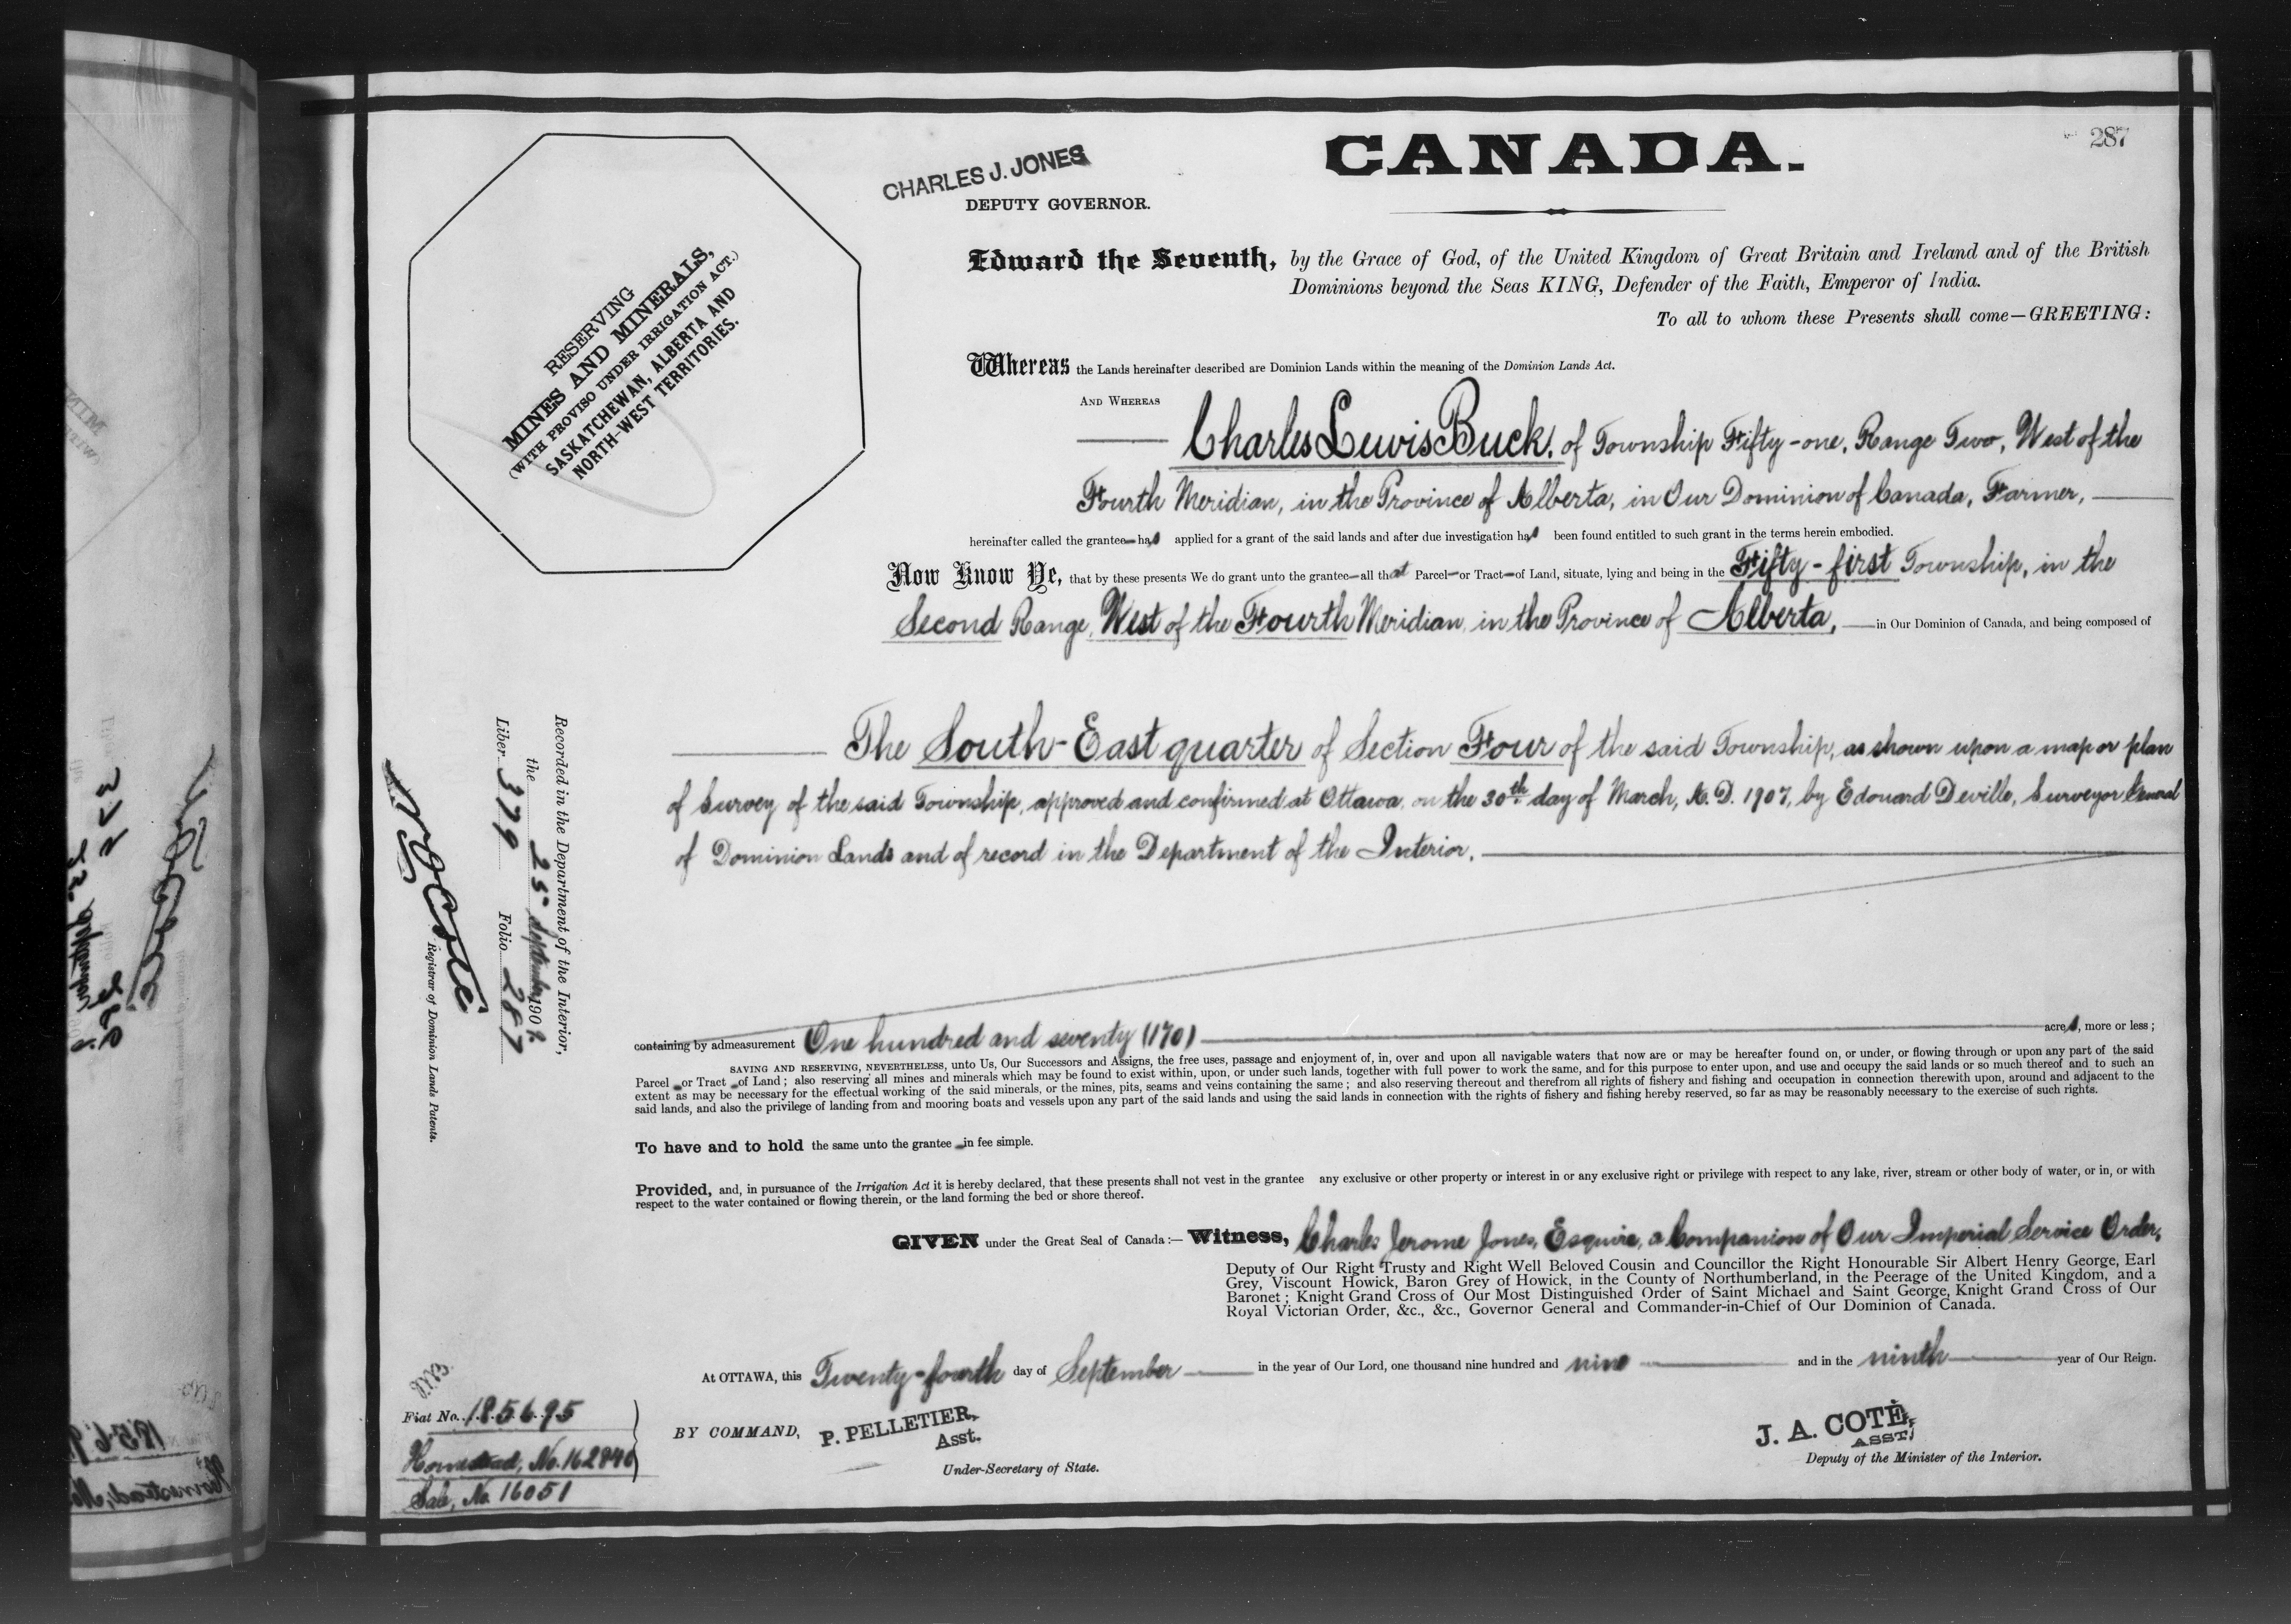 287
CANADA.
CHARLES J. JONES
DEPUTY GOVERNOR.
RESERVING
MINES AND MINERALS,
(WITH PROVISO UNDER IRRIGATION ACT.)
SASKATCHEWAN, ALBERTA AND
NORTH-WEST TERRITORIES.
Edward the Seventh, by the Grace of God, of the United Kingdom of Great Britain and Ireland and of the British
Dominions beyond the Seas KING, Defender of the Faith, Emperor of India.
To all to whom these Presents shall come—GREETING:
Whereas the Lands hereinafter described are Dominion Lands within the meaning of the Dominion Lands Act.
AND WHEREAS
Charles Lewis Buck, of Township Fifty-one, Range Two, West of the
Fourth Meridian, in the Province of Alberta, in Our Dominion of Canada, Farmer,
hereinafter called the grantee has applied for a grant of the said lands and after due investigation has been found entitled to such grant in the terms herein embodied.
Now Know Ye, that by these presents We do grant unto the grantee—all that Parcel—or Tract—of Land, situate, lying and being in the Fifty-first Township, in the
Second Range, West of the Fourth Meridian, in the Province of Alberta, in Our Dominion of Canada, and being composed of
The South-East quarter of Section Four of the said Township, as shown upon a map or plan
of Survey of the said Township, approved and confirmed at Ottawa, on the 30th day of March, A.D. 1907, by Edouard Deville, Surveyor General
of Dominion Lands and of record in the Department of the Interior.
containing by admeasurement One hundred and seventy (170) acres, more or less;
SAVING AND RESERVING, NEVERTHELESS, unto Us, Our Successors and Assigns, the free uses, passage and enjoyment of, in, over and upon all navigable waters that now are or may be hereafter found on, or under, or flowing through or upon any part of the said
Parcel or Tract of Land; also reserving all mines and minerals which may be found to exist within, upon, or under such lands, together with full power to work the same, and for this purpose to enter upon, and use and occupy the said lands or so much thereof and to such an
extent as may be necessary for the effectual working of the said minerals, or the mines, pits, seams and veins containing the same; and also reserving thereout and therefrom all rights of fishery and fishing and occupation in connection therewith upon, around and adjacent to the
said lands, and also the privilege of landing from and mooring boats and vessels upon any part of the said lands and using the said lands in connection with the rights of fishery and fishing hereby reserved, so far as may be reasonably necessary to the exercise of such rights.
To have and to hold the same unto the grantee in fee simple.
Provided, and, in pursuance of the Irrigation Act it is hereby declared, that these presents shall not vest in the grantee any exclusive or other property or interest in or any exclusive right or privilege with respect to any lake, river, stream or other body of water, or in, or with
respect to the water contained or flowing therein, or the land forming the bed or shore thereof.
GIVEN under the Great Seal of Canada:— Witness, Charles Jerome Jones, Esquire, a Companion of Our Imperial Service Order,
Deputy of Our Right Trusty and Right Well Beloved Cousin and Councillor the Right Honourable Sir Albert Henry George, Earl
Grey, Viscount Howick, Baron Grey of Howick, in the County of Northumberland, in the Peerage of the United Kingdom, and a
Baronet; Knight Grand Cross of Our Most Distinguished Order of Saint Michael and Saint George, Knight Grand Cross of Our
Royal Victorian Order, &c., &c., Governor General and Commander-in-Chief of Our Dominion of Canada.
At OTTAWA, this Twenty-fourth day of September in the year of Our Lord, one thousand nine hundred and nine and in the ninth year of Our Reign.
BY COMMAND, P. PELLETIER,
Asst.
Under-Secretary of State.
J. A. COTÉ,
ASST.
Deputy of the Minister of the Interior.
Recorded in the Department of the Interior,
the 25 September 1909.
Liber 379 Folio 287
N. O. Coté
Registrar of Dominion Lands Patents.
Fiat No. 185695
Homestead, No. 162840
Sale, No. 16051